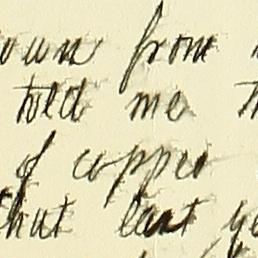 from
told me
of copper
that last